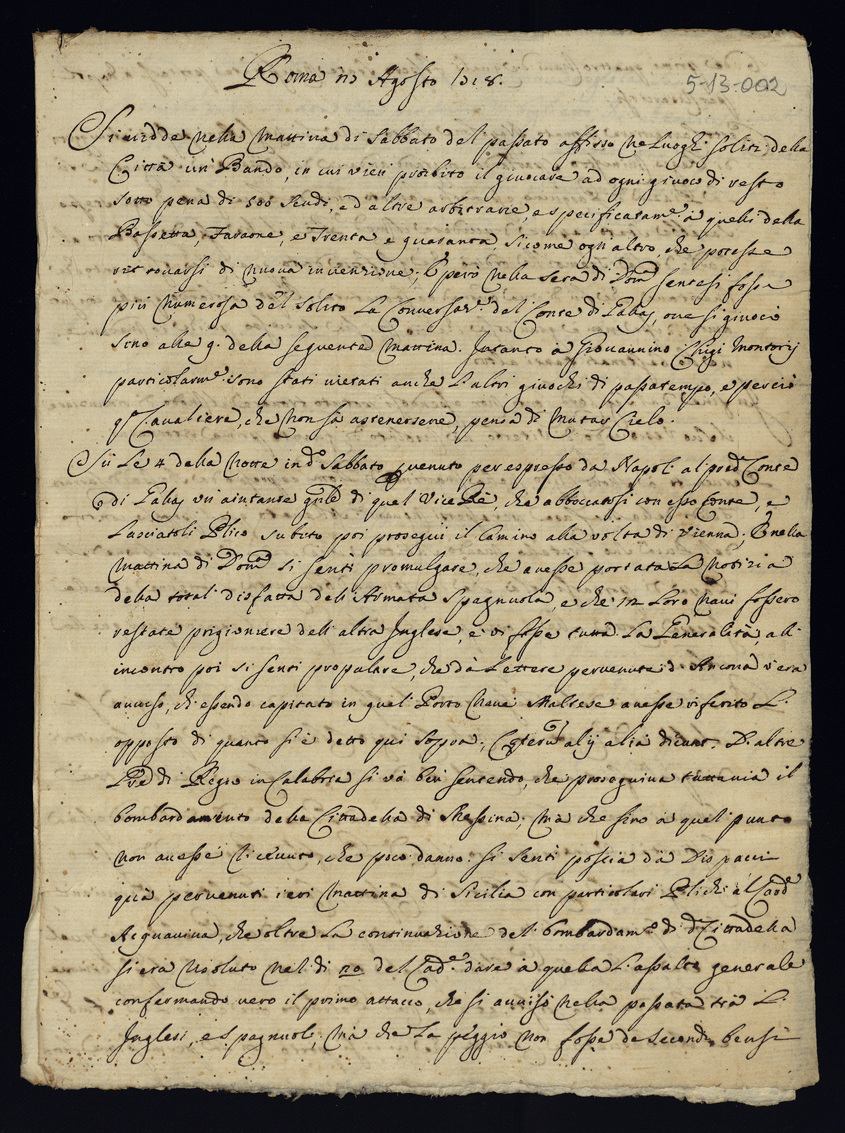 Roma 23 Agosto 1718.
5-13-002
Si vidde nella mattina di Sabbato del passato affisso ne luoghi soliti della
Città un Bando, in cui vien proibito il giuocare ad ogni giuoco di resto
sotto pena di 500 scudi, ed altre arbitrarie, e specificatam.e a quelli della
Bassetta, Faraone, e Trenta e quaranta, sicome ogn altro, che potesse
ritrovarsi di nuova invenzione; e però nella sera di Dom.ca sentesi fosse
più numerosa del solito la Conversaz.e del Conte di Gallas, ove si giuocò
sino alle 9. della seguente mattina. Intanto à Giovannino Ghigi Montorij
particolarm.e sono stati vietati anche l'altri giuochi di passatempo, e perciò
q.o Cavaliere, che non sà astenersene, pensa di mutar Cielo.
Sù le 4 della notte in d.o Sabbato venuto per espresso da Napoli al pred.o Conte
di Gallas un aiutante gnle di quel Vice Rè, che abboccatosi con esso Conte, e
lasciatoli Plico subito poi proseguì il Camino alla volta di Vienna; e nella
mattina di Dom.ca si sentì promulgare, che avesse portata la notizia
della total disfatta dell'Armata Spagnuola, e che 12 loro navi fossero
restate prigioniere dell'altra Inglese, e vi fosse tutta la Generalità, all'
incontro poi si sentì propalare, che dà lettere pervenute d'Ancona v'era
avviso, ch'essendo capitato in quel Porto nave Maltese avesse riferito l'
opposto di quanto si è detto qui sopra, Ceterum alij alia dicunt. D'altre
di Regio in Calabria si và ben sentendo, che proseguiva tuttavia il
bombardamento della Cittadella di Messina, mà che sino a quel punto
non avesse ricevuto, che poco danno. Si sentì poscia dà Dispacci
quà pervenuti ieri mattina di Sicilia con particolari Plichi al Card.e
Acquaviva, che oltre la continuazione del bombardam.o di d.a Cittadella
si era risoluto nel dì 20 del Cad.e dare à quella l'assalto generale
confermando vero il primo attacco, che si avvisò nella passata trà l'
Inglesi, e Spagnuoli, mà che la peggio non fosse de secondi, bensì